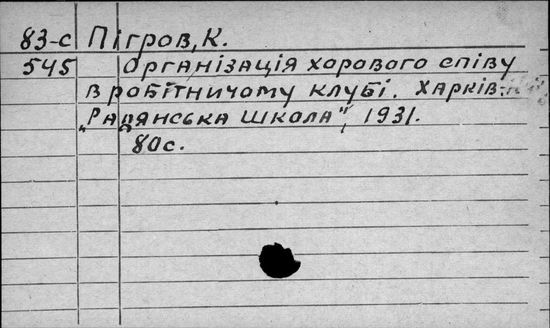 83-с Пігров, К.
545 Організація хорового співу
в робітничому клубі. Харків.
„Радянська школа", 1931.
80с.